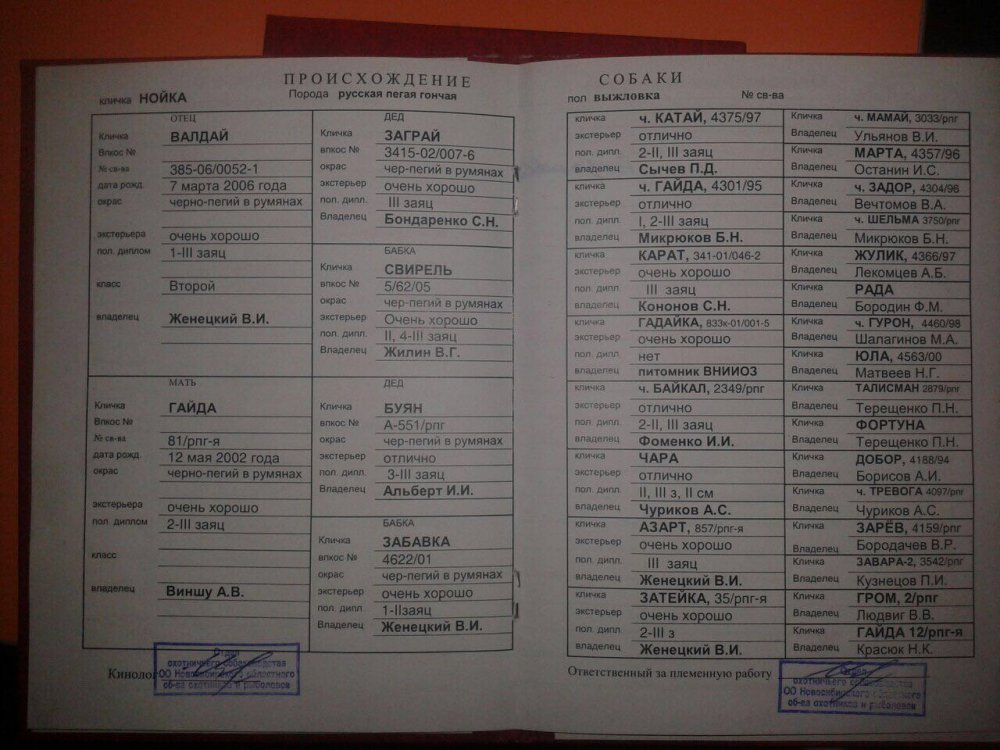 ПРОИСХОЖДЕНИЕ
кличка НОЙКА
Порода русская пегая гончая
ОТЕЦ
Кличка ВАЛДАЙ
Впкос №
№ св-ва 385-06/0052-1
дата рожд. 7 марта 2006 года
окрас черно-пегий в румянах
экстерьера очень хорошо
пол. диплом 1-III заяц
класс Второй
владелец Женецкий В.И.
ДЕД
Кличка ЗАГРАЙ
впкос № 3415-02/007-6
окрас чер-пегий в румянах
экстерьер очень хорошо
пол. дипл. III заяц
Владелец Бондаренко С.Н.
БАБКА
Кличка СВИРЕЛЬ
впкос № 5/62/05
окрас чер-пегий в румянах
экстерьер Очень хорошо
пол. дипл. II, 4-III заяц
Владелец Жилин В.Г.
МАТЬ
Кличка ГАЙДА
Впкос №
№ св-ва 81/рпг-я
дата рожд. 12 мая 2002 года
окрас черно-пегий в румянах
экстерьера очень хорошо
пол. диплом 2-III заяц
класс
владелец Виншу А.В.
ДЕД
Кличка БУЯН
впкос № А-551/рпг
окрас чер-пегий в румянах
экстерьер отлично
пол. дипл. 3-III заяц
Владелец Альберт И.И.
БАБКА
Кличка ЗАБАВКА
впкос № 4622/01
окрас чер-пегий в румянах
экстерьер очень хорошо
пол. дипл. 1-IIзаяц
Владелец Женецкий В.И.
Кинолог
Отдел
охотничьего собаководства
ОО Новосибирского областного
об-ва охотников и рыболовов
СОБАКИ
пол выжловка № св-ва
кличка ч. КАТАЙ, 4375/97
экстерьер отлично
пол. дипл. 2-II, III заяц
владелец Сычев П.Д.
кличка ч. ГАЙДА, 4301/95
экстерьер отлично
пол. дипл. I, 2-III заяц
владелец Микрюков Б.Н.
кличка КАРАТ, 341-01/046-2
экстерьер очень хорошо
пол. дипл. III заяц
владелец Кононов С.Н.
кличка ГАДАЙКА, 833к-01/001-5
экстерьер очень хорошо
пол. дипл. нет
владелец питомник ВНИИОЗ
кличка ч. БАЙКАЛ, 2349/рпг
экстерьер отлично
пол. дипл. 2-II, III заяц
владелец Фоменко И.И.
кличка ЧАРА
экстерьер отлично
пол. дипл. II, III з, II см
владелец Чуриков А.С.
кличка АЗАРТ, 857/рпг-я
экстерьер очень хорошо
пол. дипл. III заяц
владелец Женецкий В.И.
кличка ЗАТЕЙКА, 35/рпг-я
экстерьер очень хорошо
пол. дипл. 2-III з
владелец Женецкий В.И.
Кличка ч. МАМАЙ, 3033/рпг
Владелец Ульянов В.И.
Кличка МАРТА, 4357/96
Владелец Останин И.С.
Кличка ч. ЗАДОР, 4304/96
Владелец Вечтомов В.А.
Кличка ч. ШЕЛЬМА 3750/рпг
Владелец Микрюков Б.Н.
Кличка ЖУЛИК, 4366/97
Владелец Лекомцев А.Б.
Кличка РАДА
Владелец Бородин Ф.М.
Кличка ч. ГУРОН, 4460/98
Владелец Шалагинов М.А.
Кличка ЮЛА, 4563/00
Владелец Матвеев Н.Г.
Кличка ТАЛИСМАН 2879/рпг
Владелец Терещенко П.Н.
Кличка ФОРТУНА
Владелец Терещенко П.Н.
Кличка ДОБОР, 4188/94
Владелец Борисов А.И.
Кличка ч. ТРЕВОГА 4097/рпг
Владелец Чуриков А.С.
Кличка ЗАРЁВ, 4159/рпг
Владелец Бородачев В.Р.
Кличка ЗАВАРА-2, 3542/рпг
Владелец Кузнецов П.И.
Кличка ГРОМ, 2/рпг
Владелец Людвиг В.В.
Кличка ГАЙДА 12/рпг-я
Владелец Красюк Н.К.
Ответственный за племенную работу
Отдел
охотничьего собаководства
ОО Новосибирского областного
об-ва охотников и рыболовов